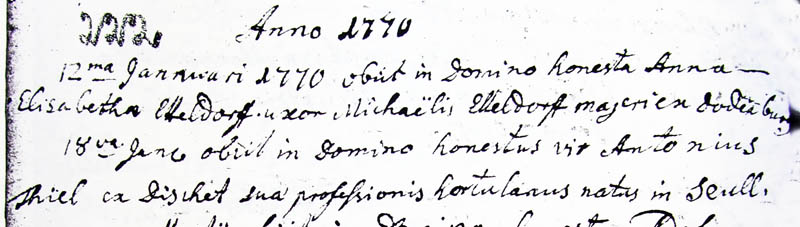 Anno 1770
12ma Januuari 1770 obiit in Domino honesta Anna
Elisabetha Elteldorff uxor Michaëlis Elteldorff majeri ex dodenburg
18va Janu obiit in Domino honestus vir Antonius
Thiel ex Dischet sua professionis hortulanus natus in Seull.
obiit in Domino